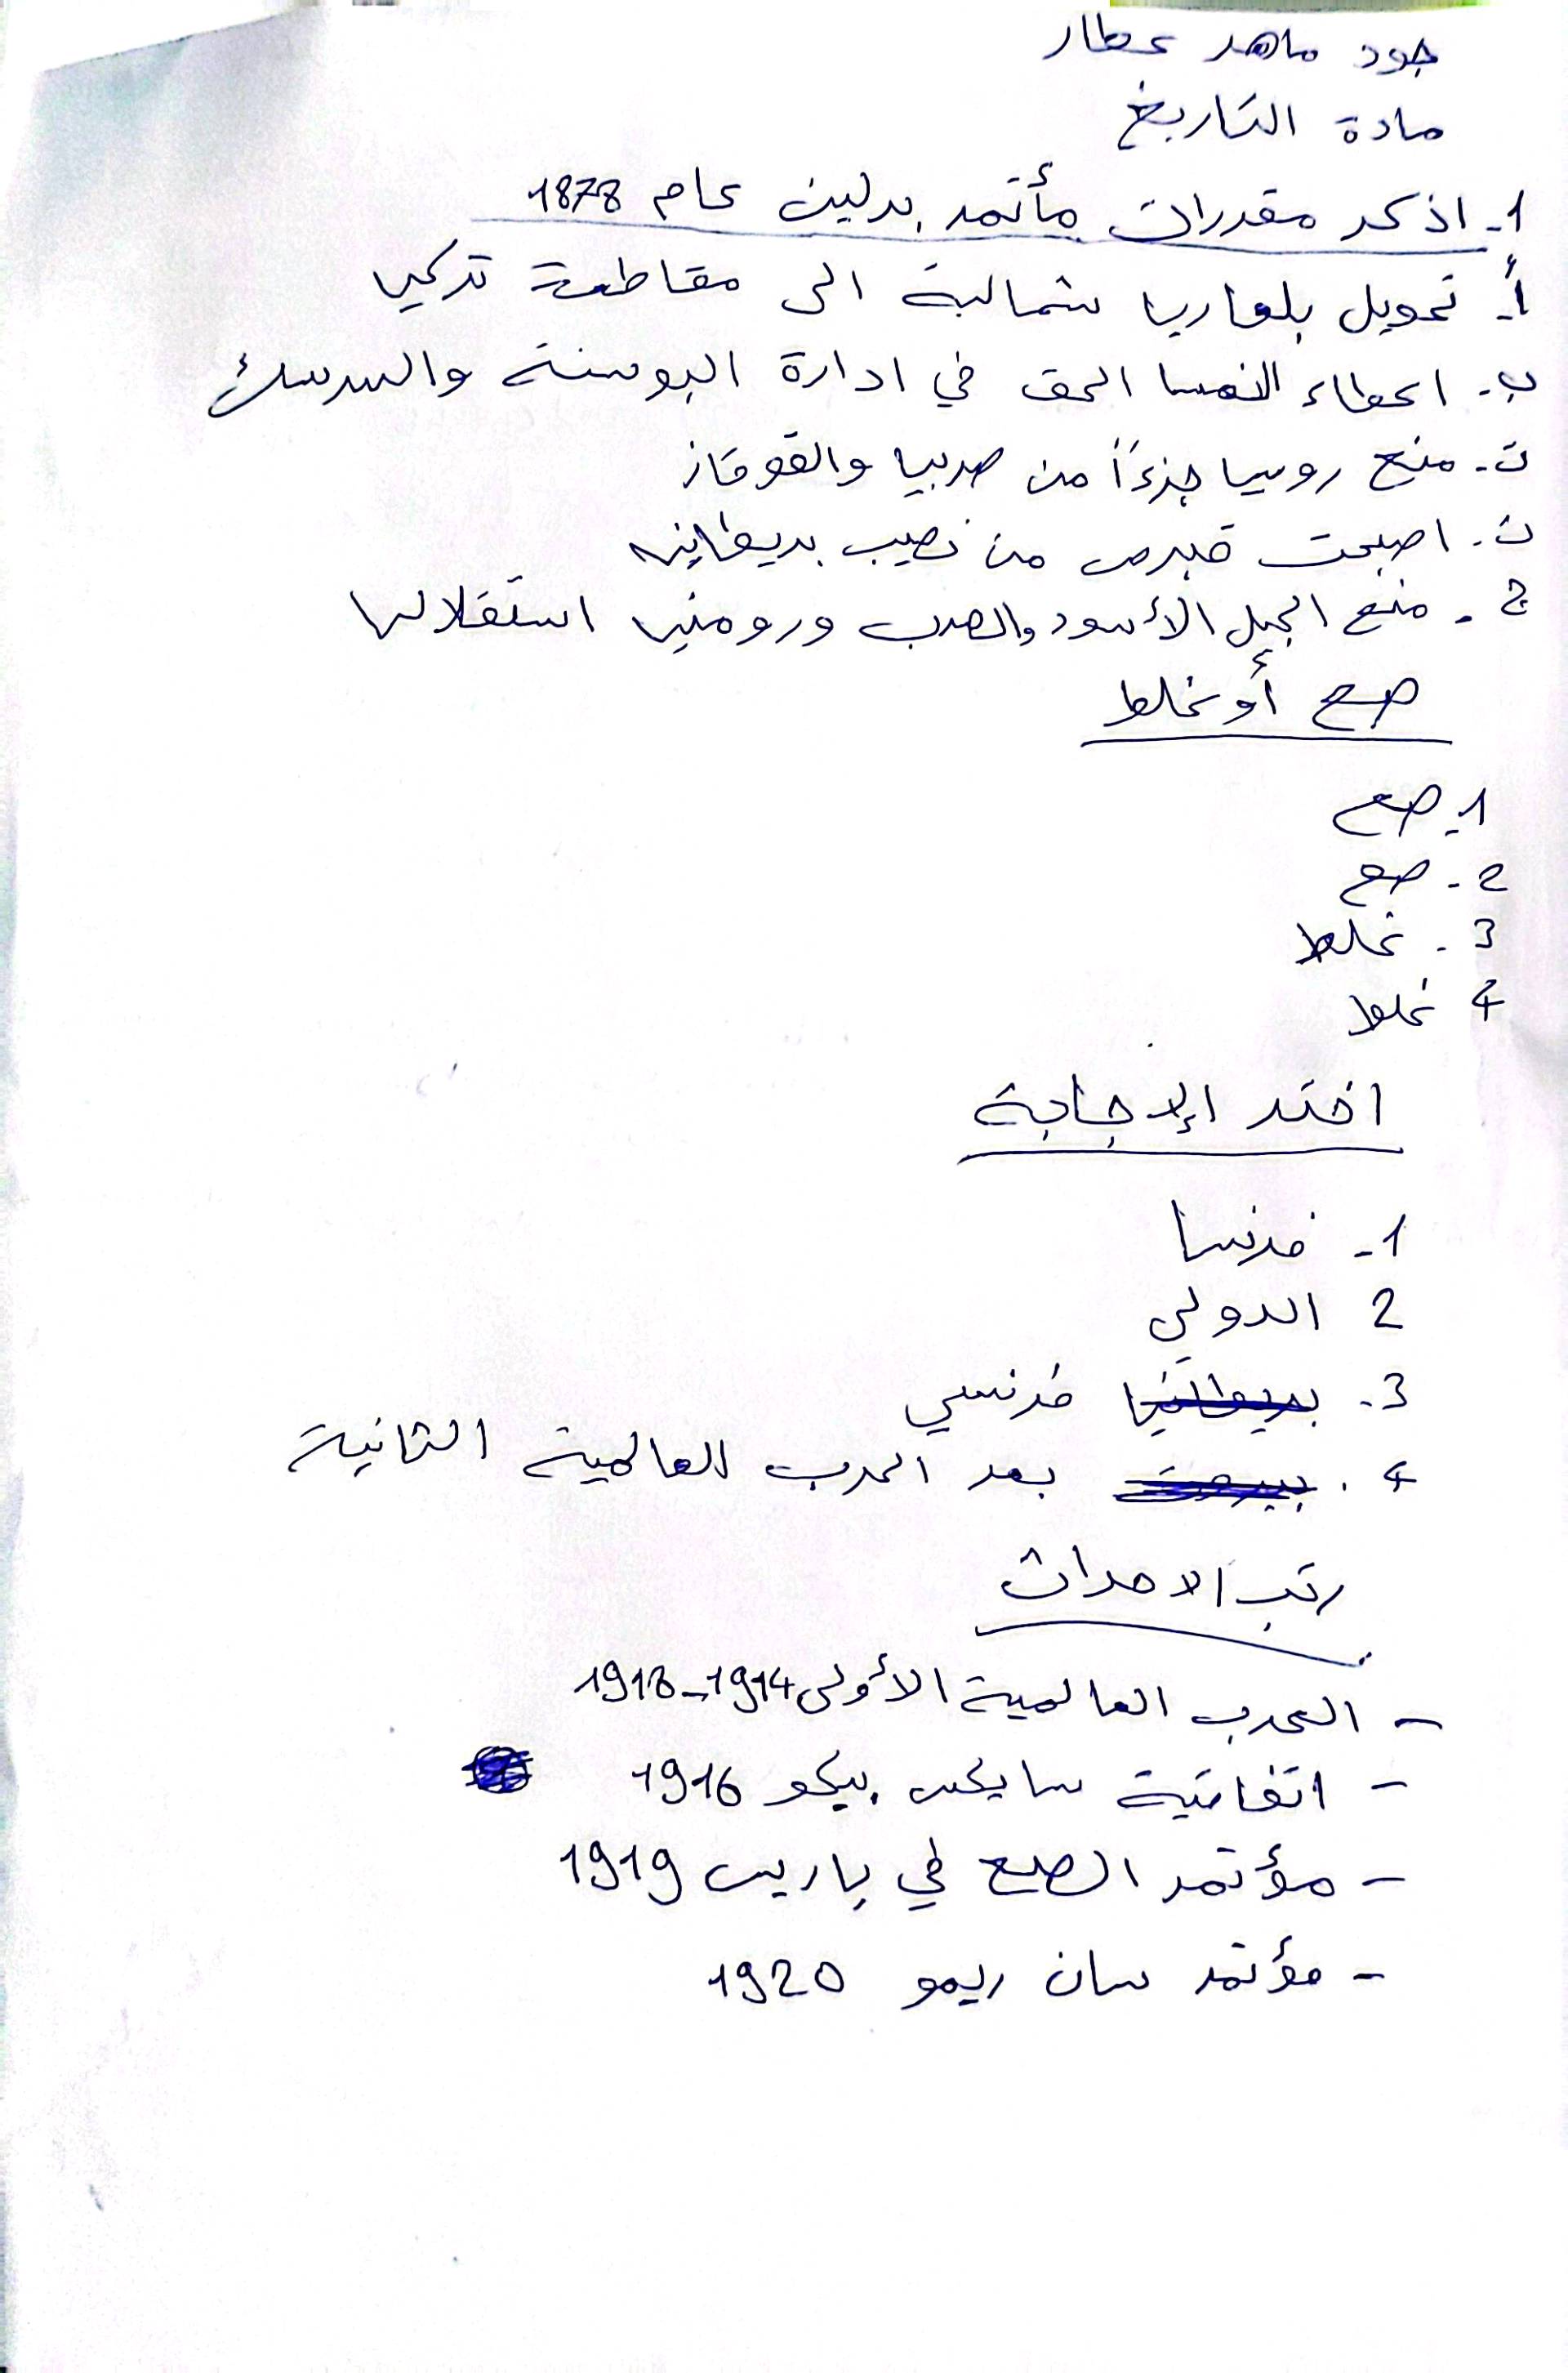 جود ماهر عطار
مادة التاريخ
1- اذكر مقررات مأتمر برلين عام 1878
أ- تحويل بلغاريا شمالية الى مقاطعة تركيا
ب- اعطاء النمسا الحق في ادارة البوسنة والسرسك
ت- منح روسيا جزءاً من صربيا والقوقاز
ث- اصبحت قبرص من نصيب بريطانيه
ج - منح الجبل الأسود والصرب ورومنيا استقلالها
صح أو غلط
1- صح
2- صح
3- غلط
4 غلط
اختر الإجابة
1- فرنسا
2 الدولي
3- بريطانيا فرنسي
4. بعد الحرب العالمية الثانية
رتب الاحداث
- الحرب العالمية الأولى 1914-1918
- اتفاقية سايكس بيكو 1916
- مؤتمر الصلح في باريس 1919
- مؤتمر سان ريمو 1920